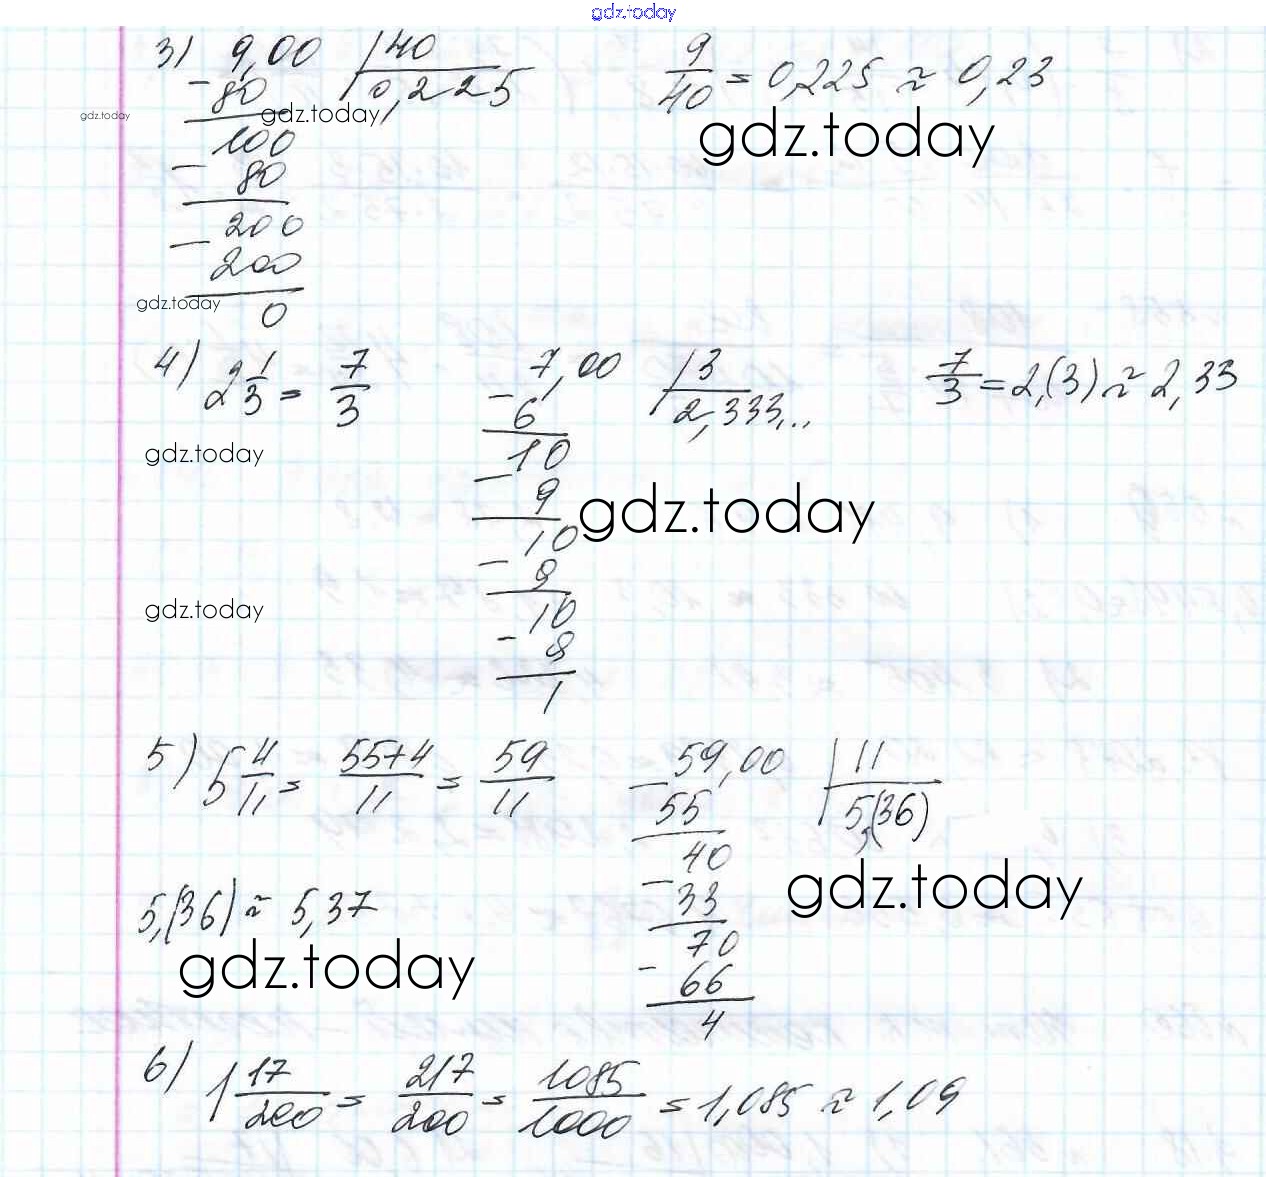 gdz.today
3) 9,00 | 40
- 80 | 0,225
gdz.today gdz.today
100
- 80
200
- 200
gdz.today
0
9/40 = 0,225 ≈ 0,23
gdz.today
4) 2 1/3 = 7/3
7,00 | 3
- 6 | 2,333...
10
- 9
10
- 9
10
- 9
1
7/3 = 2,(3) ≈ 2,33
gdz.today
gdz.today
gdz.today
5) 5 4/11 = 55+4/11 = 59/11
59,00 | 11
- 55 | 5,(36)
40
- 33
70
- 66
4
gdz.today
5,(36) ≈ 5,37
gdz.today
6) 1 17/200 = 217/200 = 1085/1000 = 1,085 ≈ 1,09